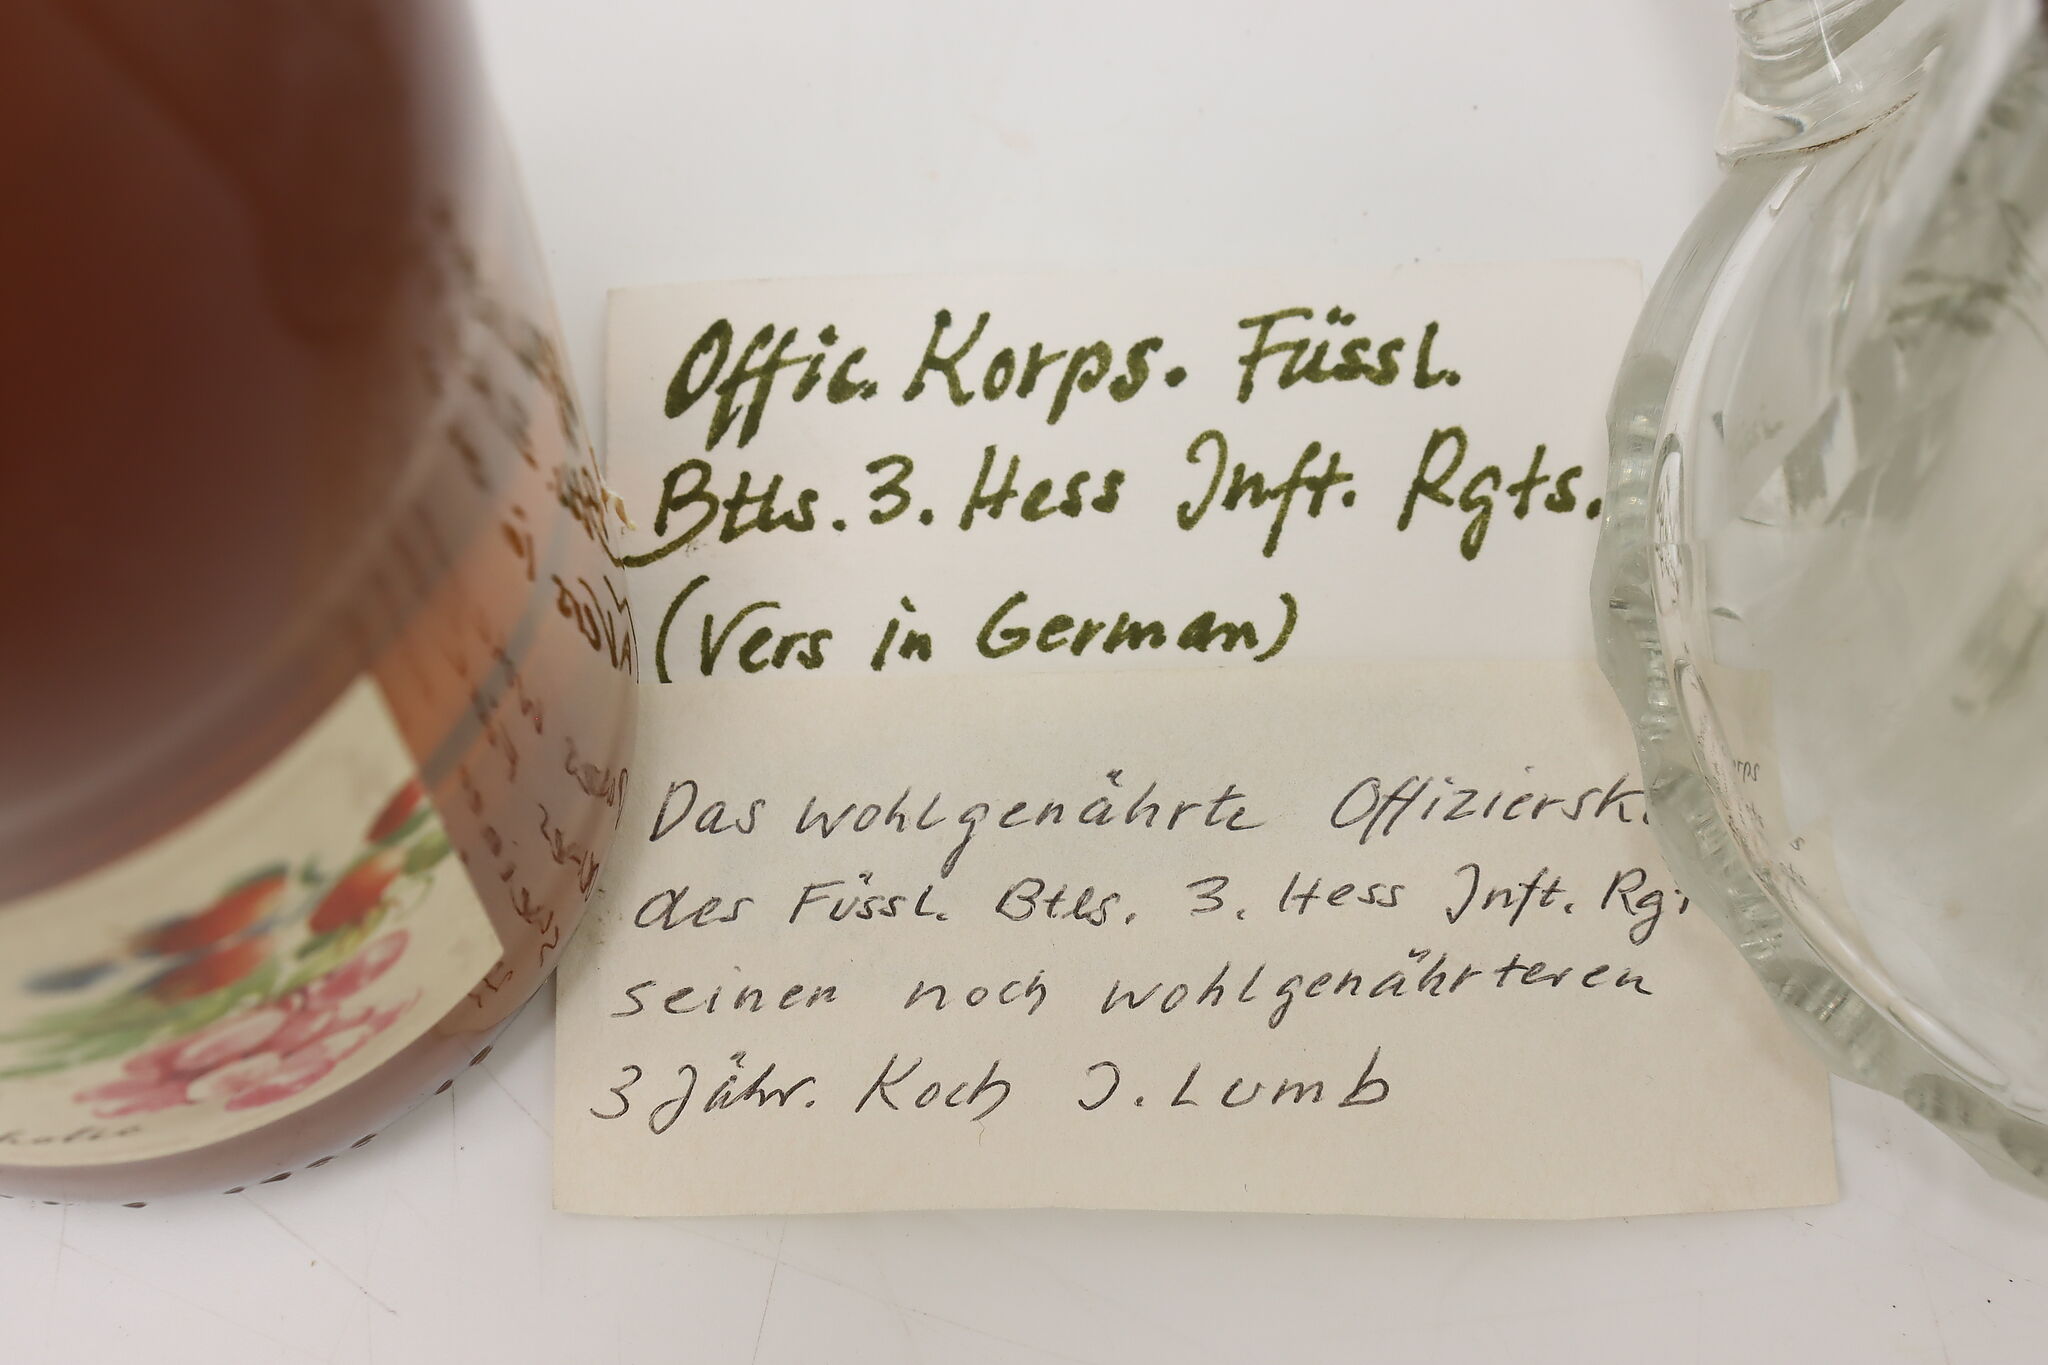 Offic. Korps. Füssl.
Btls. 3. Hess Inft. Rgts.
(Vers in German)
Das wohlgenährte Offiziersk.
des Füssl. Btls. 3. Hess Inft.
seinen noch wohlgenährteren
3 Jähr. Koch J. Lumb